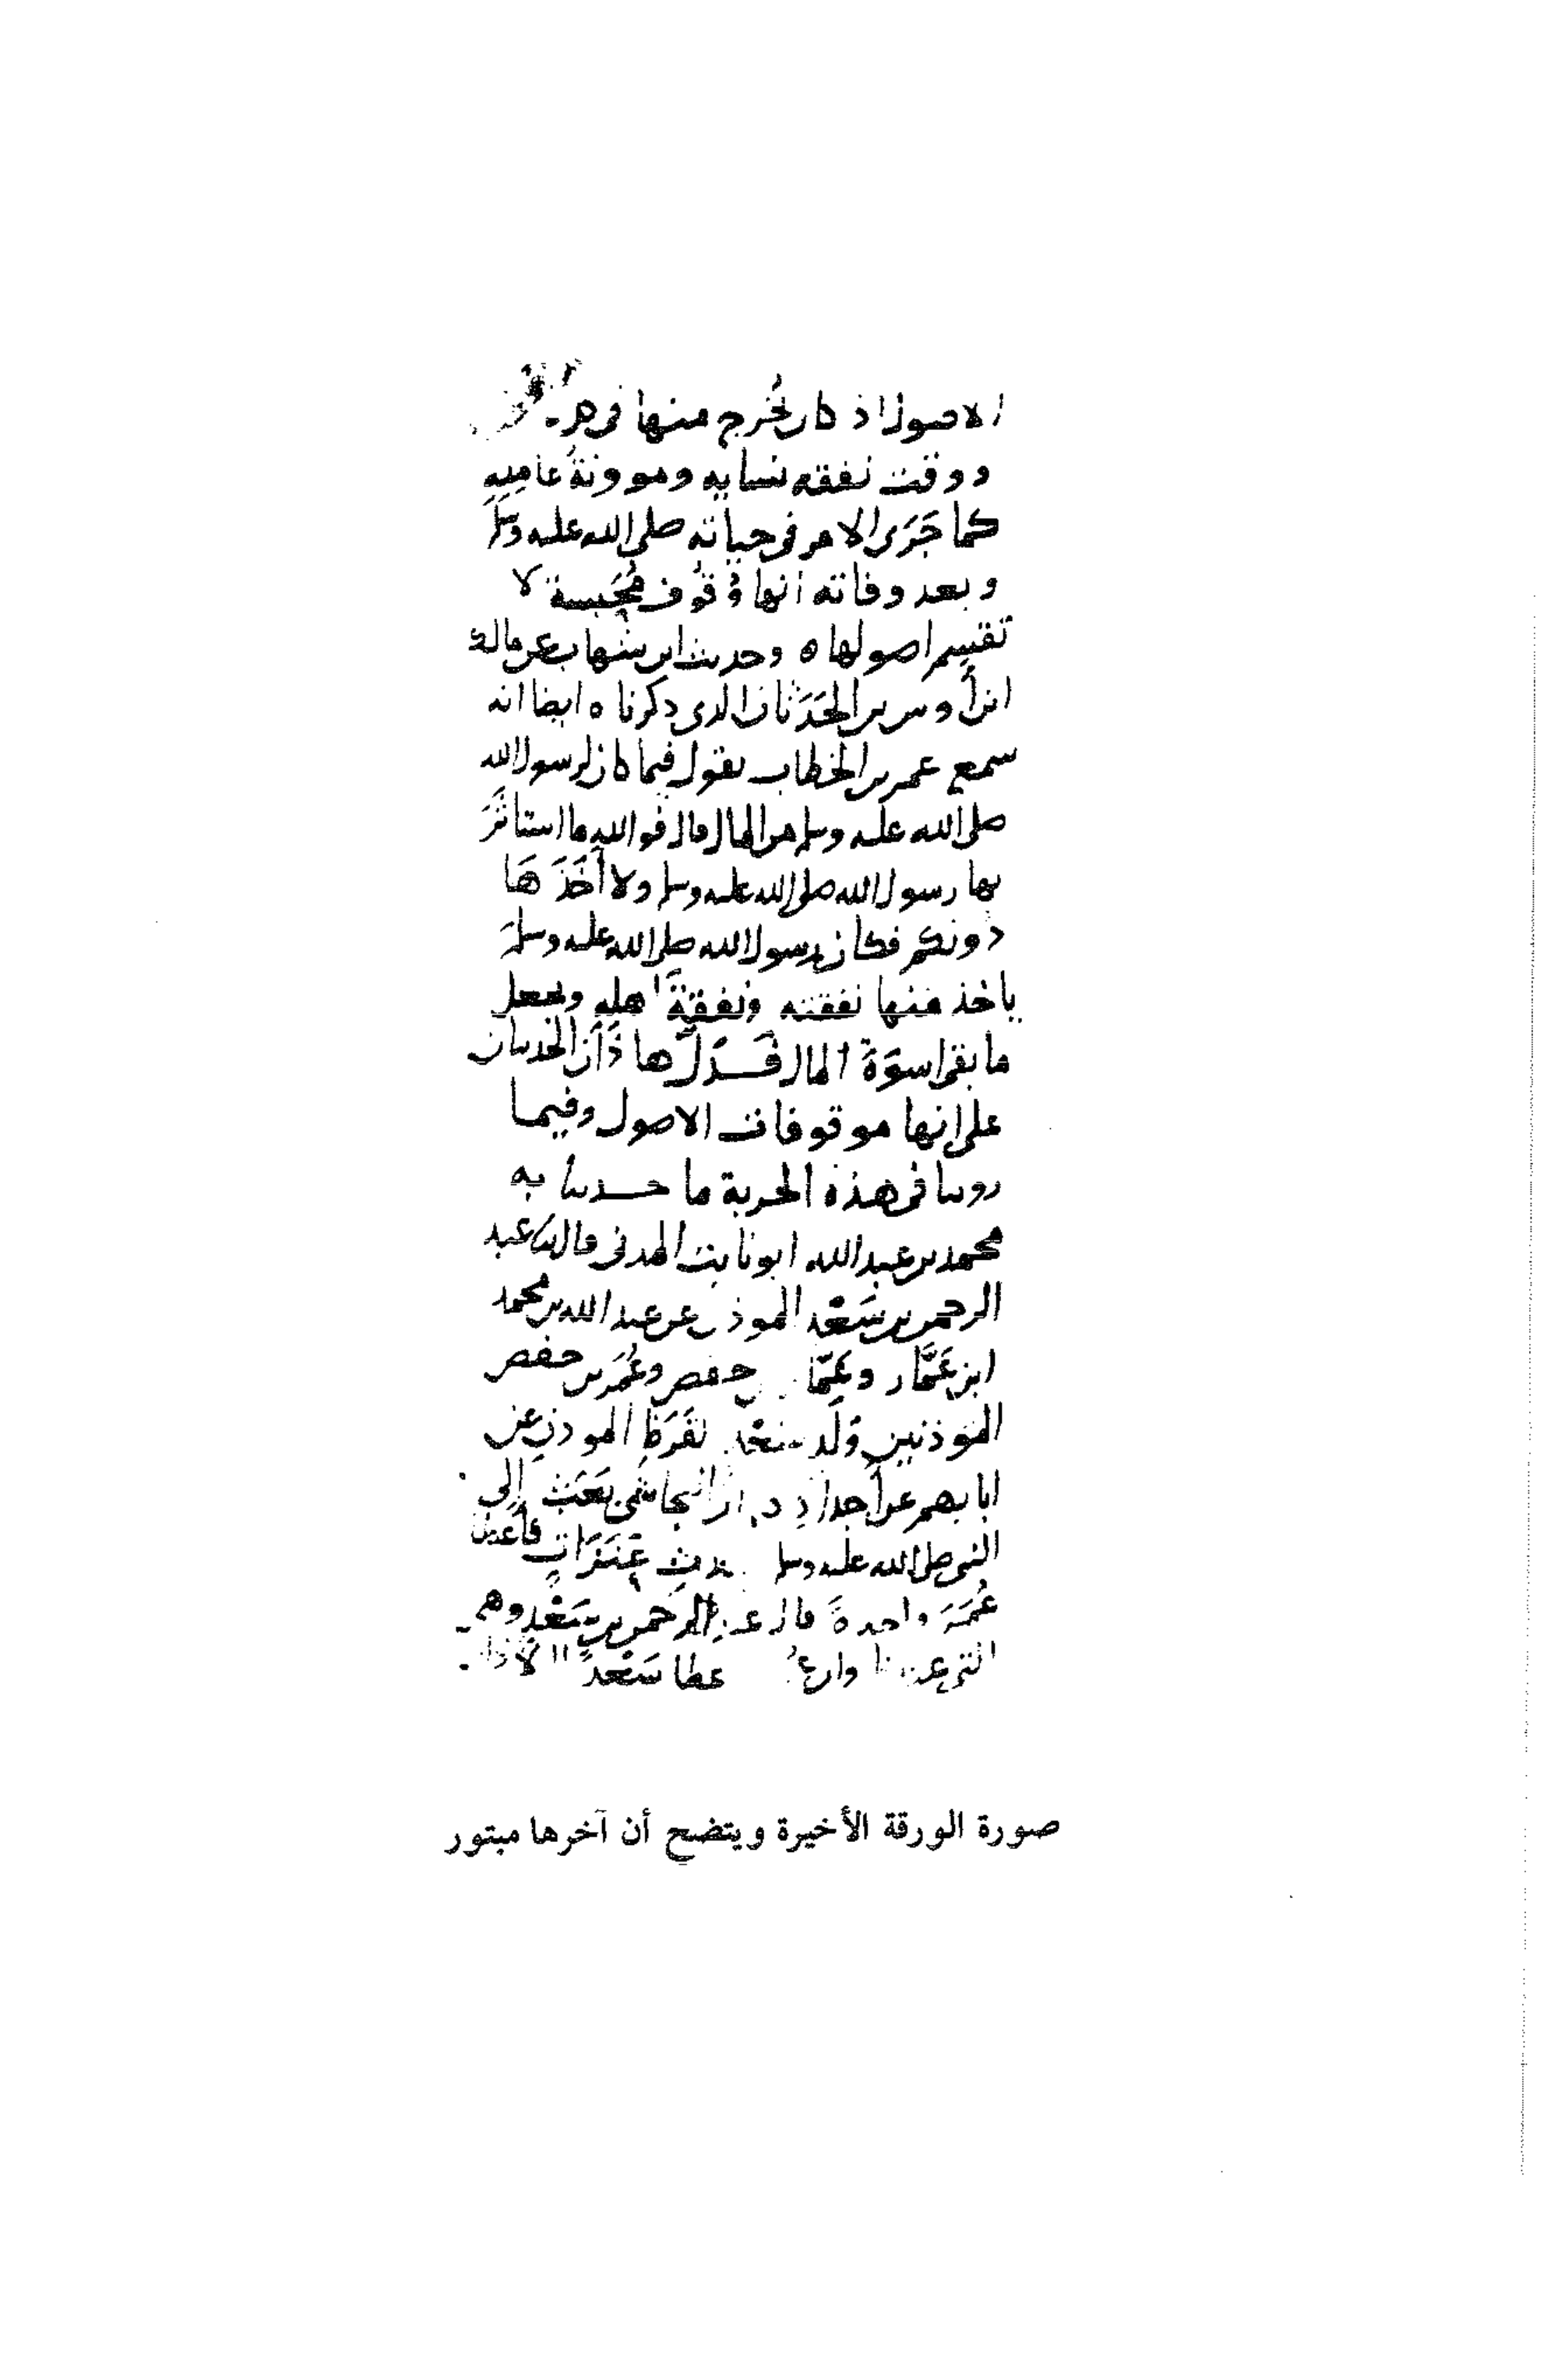 الاصول اذ كان يخرج منها فى
دوقت نفقه نسايه ومو ونة عامله
كما جَرَى الامر فى حياته صلى الله عليه وسلم
وبعد وفاته انها وُقُوف مُحَبسة لا
تقسم اصولها ه وحديث ابن شهاب عن مالك
ابن أوس بن الحَدَثان الذى ذكرناه ايضا انه
سمع عمر بن الخطاب يقول فيما كان لرسول الله
صلى الله عليه وسلم من المال قال فوالله ما استاثَرَ
بها رسول الله صلى الله عليه وسلم ولا أَخَذَهَا
دونكم فكان رسول الله صلى الله عليه وسلم
ياخذ منها نفقته ونفقةَ اهله ويجعل
ما بقى اسوَةَ المال فَدَلَّ هاذَان الحديثان
على انها موقوفات الاصول وفيما
روينا فى هذه الحربة ما حدثنا به
محمد بن عبد الله ابو ثابت المدنى قال نا عبد
الرحمن بن سَعْد الموذن عن عبد الله بن محمد
ابن عَمَّار وعَمّار بن حفص وعُمَر بن حفص
الموذنين وَلَد سَعْد القَرَظ الموذن عن
ابايهم عن أجدادهم ان النجاشى بَعَثَ إلى
النبى صلى الله عليه وسلم بثلاث عَنَزَاتٍ فأعطى
عُمَرَ واحدةً قال عبد الرحمن بن سَعْد وهى
التى عطا سَعْدً
صورة الورقة الأخيرة ويتضح أن آخرها مبتور